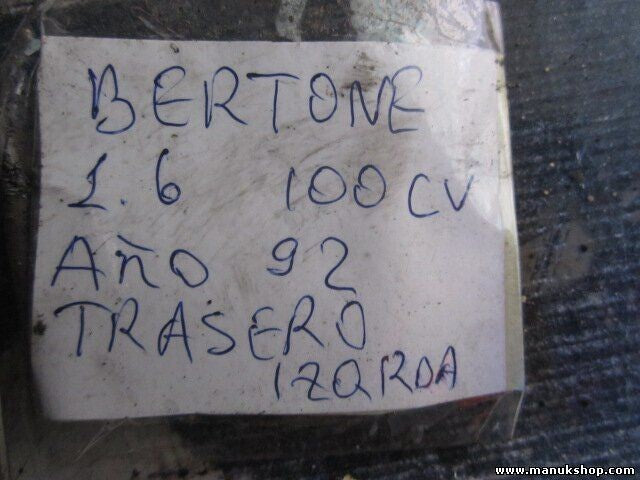 BERTONE
1.6 100 CV
AÑO 92
TRASERO
IZQRDA
www.manukshop.com